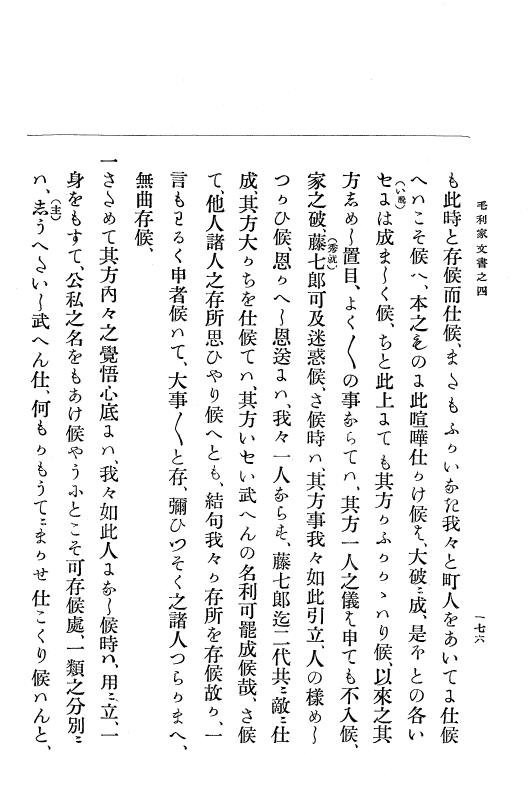 毛利家文書之四
一七六
も此時と存候而仕候、まくさもふかいなき我々と町人をあいてニ仕候
へハこそ候へ、本之ものニ此喧嘩仕かけ候ハ、大破ニ成、是ほとの各い
セニは成まし〳〵く候、ちと此上ニても其方かふかゝハり候、以來之其
(い勢)
方しめし置目、よく〳〵の事ならてハ、其方一人之儀を申ても不入候、
家之破、藤七郎可及迷惑候、さ候時ハ、其方事我々如此引立、人の樣めし
(秀就)
つかひ候、恩かへし恩送ニハ、我々一人ならす、藤七郎迄二代共ニ敵ニ仕
成、其方大かちを仕候てハ、其方いせい武へんの名利可罷成候哉、さ候
て、他人諸人之存所思ひやり候へとも、結句我々か存所を存候故か、一
言もわるく申者候ハて、大事〳〵と存、彌ひつそく之諸人つらかまへ、
無曲存候、
一さためて其方内々之覺悟心底ニハ、我々如此人ニなし候時ハ、用ニ立、一
身をもすて、公私之名をもあけ候やうにとこそ可存候處、一類之分別ニ
ハ、志うへたいし武へん仕、何もかもうてニまかせ仕こくり候ハんと、
(主)